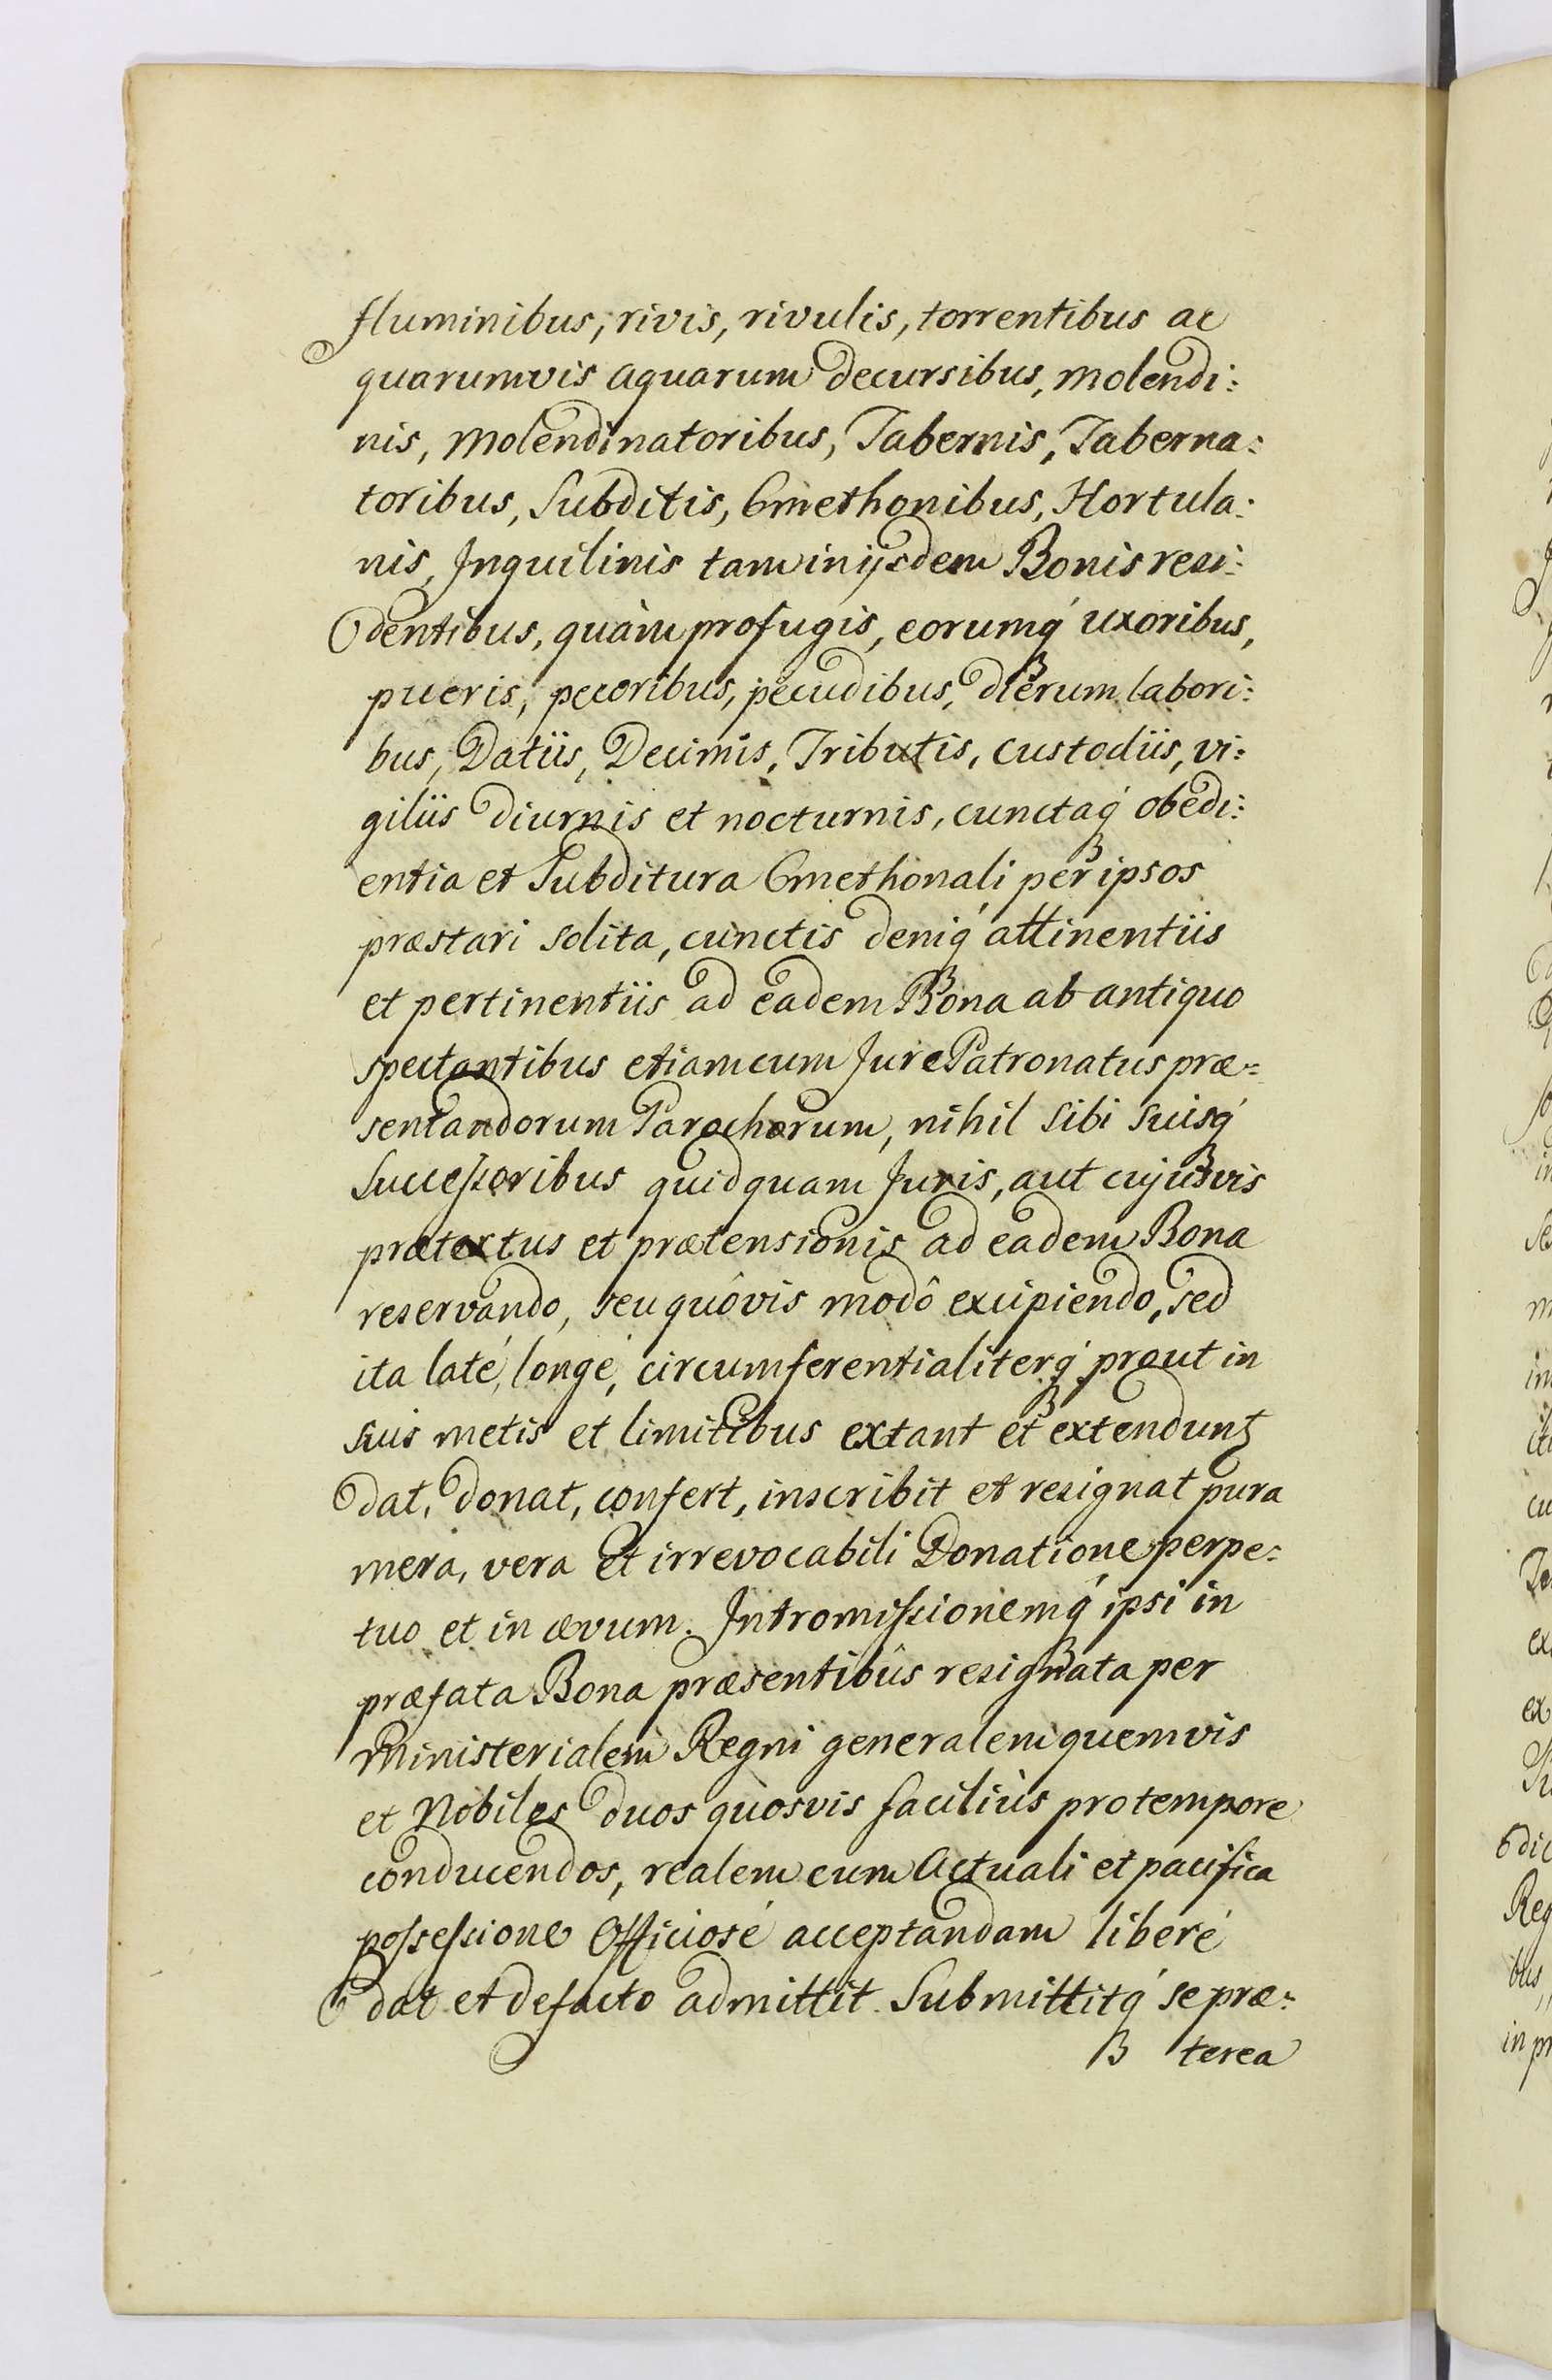 fluminibus, rivis, rivulis, torrentibus ac
quarumvis aquarum decursibus, molendi:
nis, molendinatoribus, Tabernis, Taberna:
toribus, Subditis, Cmethonibus, Hortula:
nis, Inquilinis tam in ijsdem Bonis resi:
dentibus, quàm profugis, eorumq́ uxoribus,
pueris, pecoribus, pecudibus, dierum labori:
bus, Datiis, Decimis, Tributis, custodiis, vi:
giliis diurnis et nocturnis, cunctaq́ obedi:
entia et Subditura Cmethonali per ipsos
præstari solita, cunctis deniq́ attinentiis
et pertinentiis ad eadem Bona ab antiquo
spectantibus etiam cum Jure Patronatus præ:
sentandorum Parochorum, nihil sibi suisq́
Successoribus quidquam Juris, aut cujusvis
prætextus et prætensionis ad eadem Bona
reservando, seu quôvis modô excipiendo, sed
ita laté, longé, circumferentialiterq́ prout in
suis metis et limitibus extant et extendunt
dat, donat, confert, inscribit et resignat pura
mera, vera et irrevocabili Donatione perpe:
tuo et in ævum. Intromissionemq́ ipsi in
præfata Bona præsentibus resignata per
Ministerialem Regni generalem quemvis
et Nobiles duos quosvis faciliùs pro tempore
conducendos, realem cum actuali et pacifica
possessione Officiosé acceptandam liberé
dat et defacto admittit. Submittitq́ se præ:
B terea